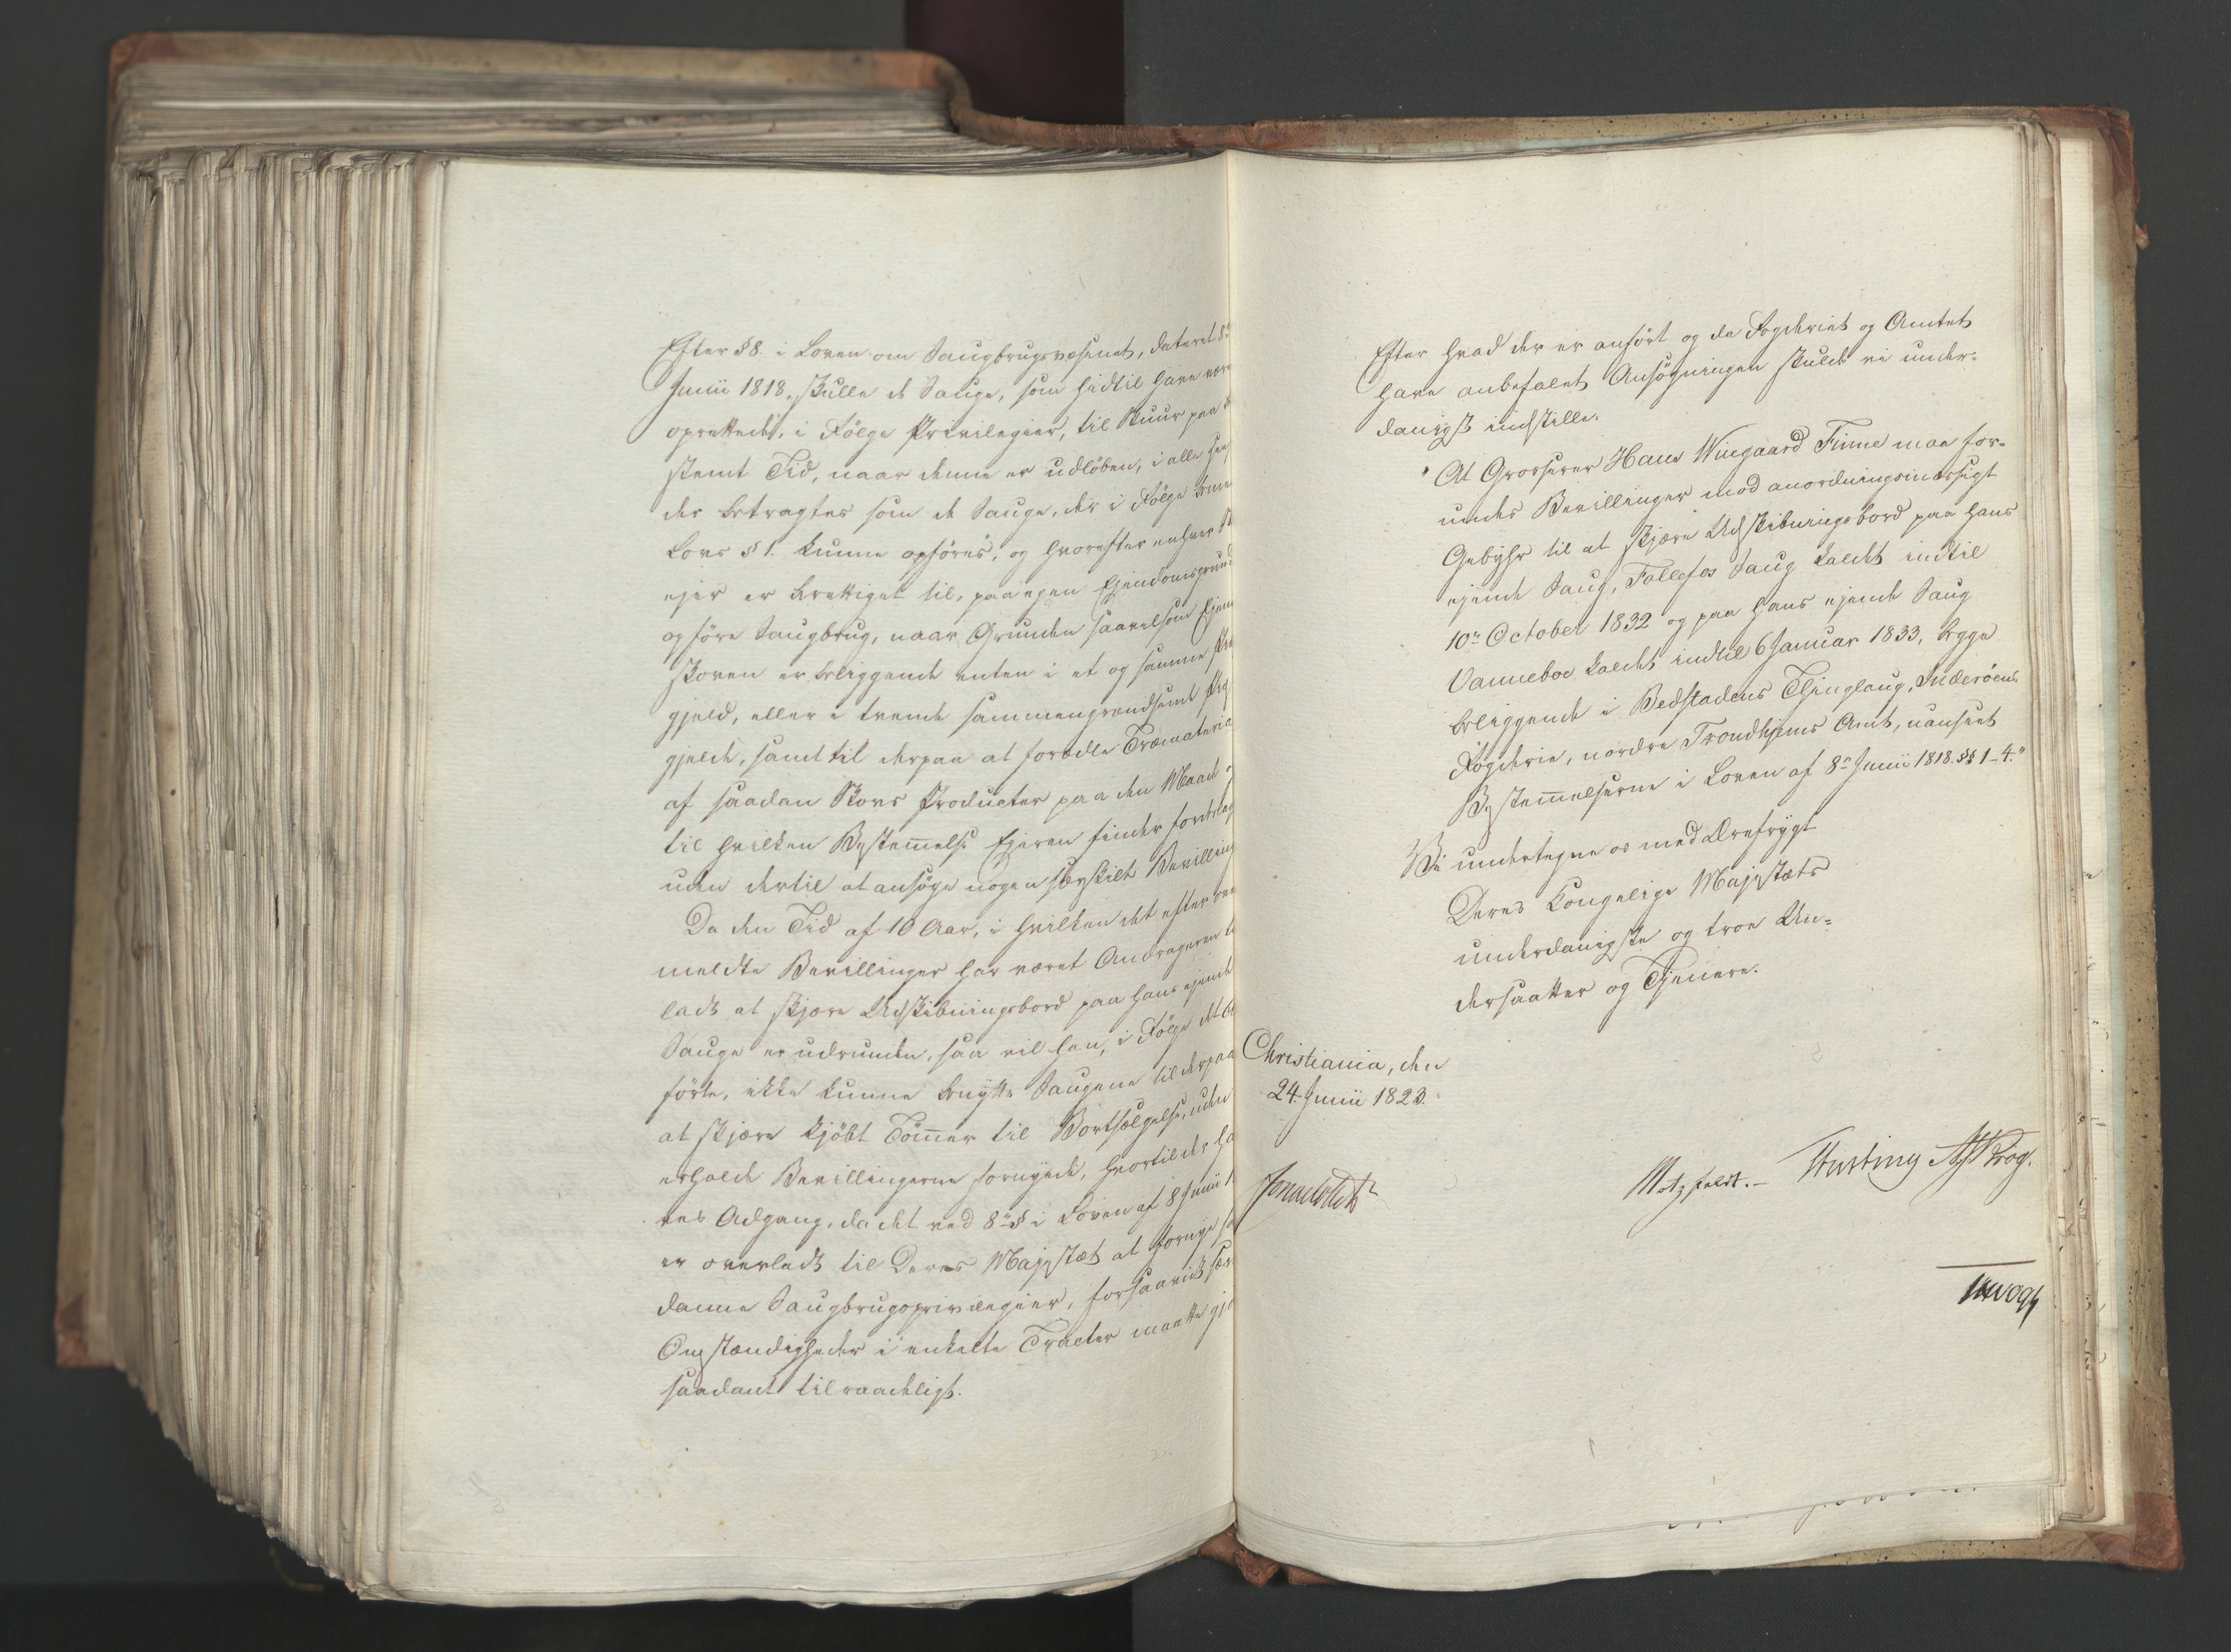 Efter § 8. i Loven om Saugbrugsvæsenet, dateret 8de
Junii 1818, skulle de Sauge, som hidtil have være
oprettede, i Følge Privilegier, til Skuur paa
stemt Tid, naar denne er udløben, i alle Hen
der betragtes som de Sauge, der i Følge bem
Lovs § 1. kunne opføres, og hvorefter enhver
ejer er berettiget til, paa egen Ejendomsgrund
opføre Saugbrug, naar Grunden saavelsom Ejen
skoven er beliggende enten i et og samme Præ
gjeld, eller i tvende sammengrændsende Præ
gjelde, samt til derpaa at forædle Træmateria
af saadan Skovs Producter paa den Maade
til hvilken Bestemmelse Ejeren finder fordelag
uden dertil at ansøge nogen særskilt Bevilling
Da den Tid af 10 Aar, i hvilken det efter
meldte Bevillinger har været Andrageren
ladt at skjære Udskibningsbord paa hans ejende
Sauge er udrunden, saa vil han, i Følge det
førte, ikke kunne benytte Saugene til derpaa
at skjære kjøbt Tømmer til Bortsælgelse, uden
erholde Bevillingerne fornyede, hvortil der ha
ves Adgang, da det ved 8de § i Loven af 8 Junii
er overladt til Deres Majestæt at fornye
danne Saugbrugsprivilegier, forsaavidt sær
Omstændigheder i enkelte Tracter maatte gj
saadant tilraadeligt.
Efter hvad der er anført og da Fogderiet og Amtet
have anbefalet Ansøgningen skulde vi under-
danigst indstille:
"At Grosserer Hans Wingaard Finne maa for-
undes Bevillinger mod anordningsmæssigt
Gebyhr til at skjære Udskibningsbord paa hans
ejende Saug, Follafos Saug kaldet indtil
10de October 1832 og paa hans ejende Saug
Vanneboe kaldet indtil 6 Januar 1833, begge
beliggende i Bedstadens Thinglaug, Inderøens
Fogderie, nordre Trondhjems Amt, uanseet
Bestemmelserne i Loven af 8de Junii 1818. §§ 1-4."
Vi undertegne os med Ærefrygt
Deres Kongelige Majestæts
underdanigste og troe Un-
dersaatter og Tjenere.
Christiania, den
24. Junii 1823.
Motzfeldt.